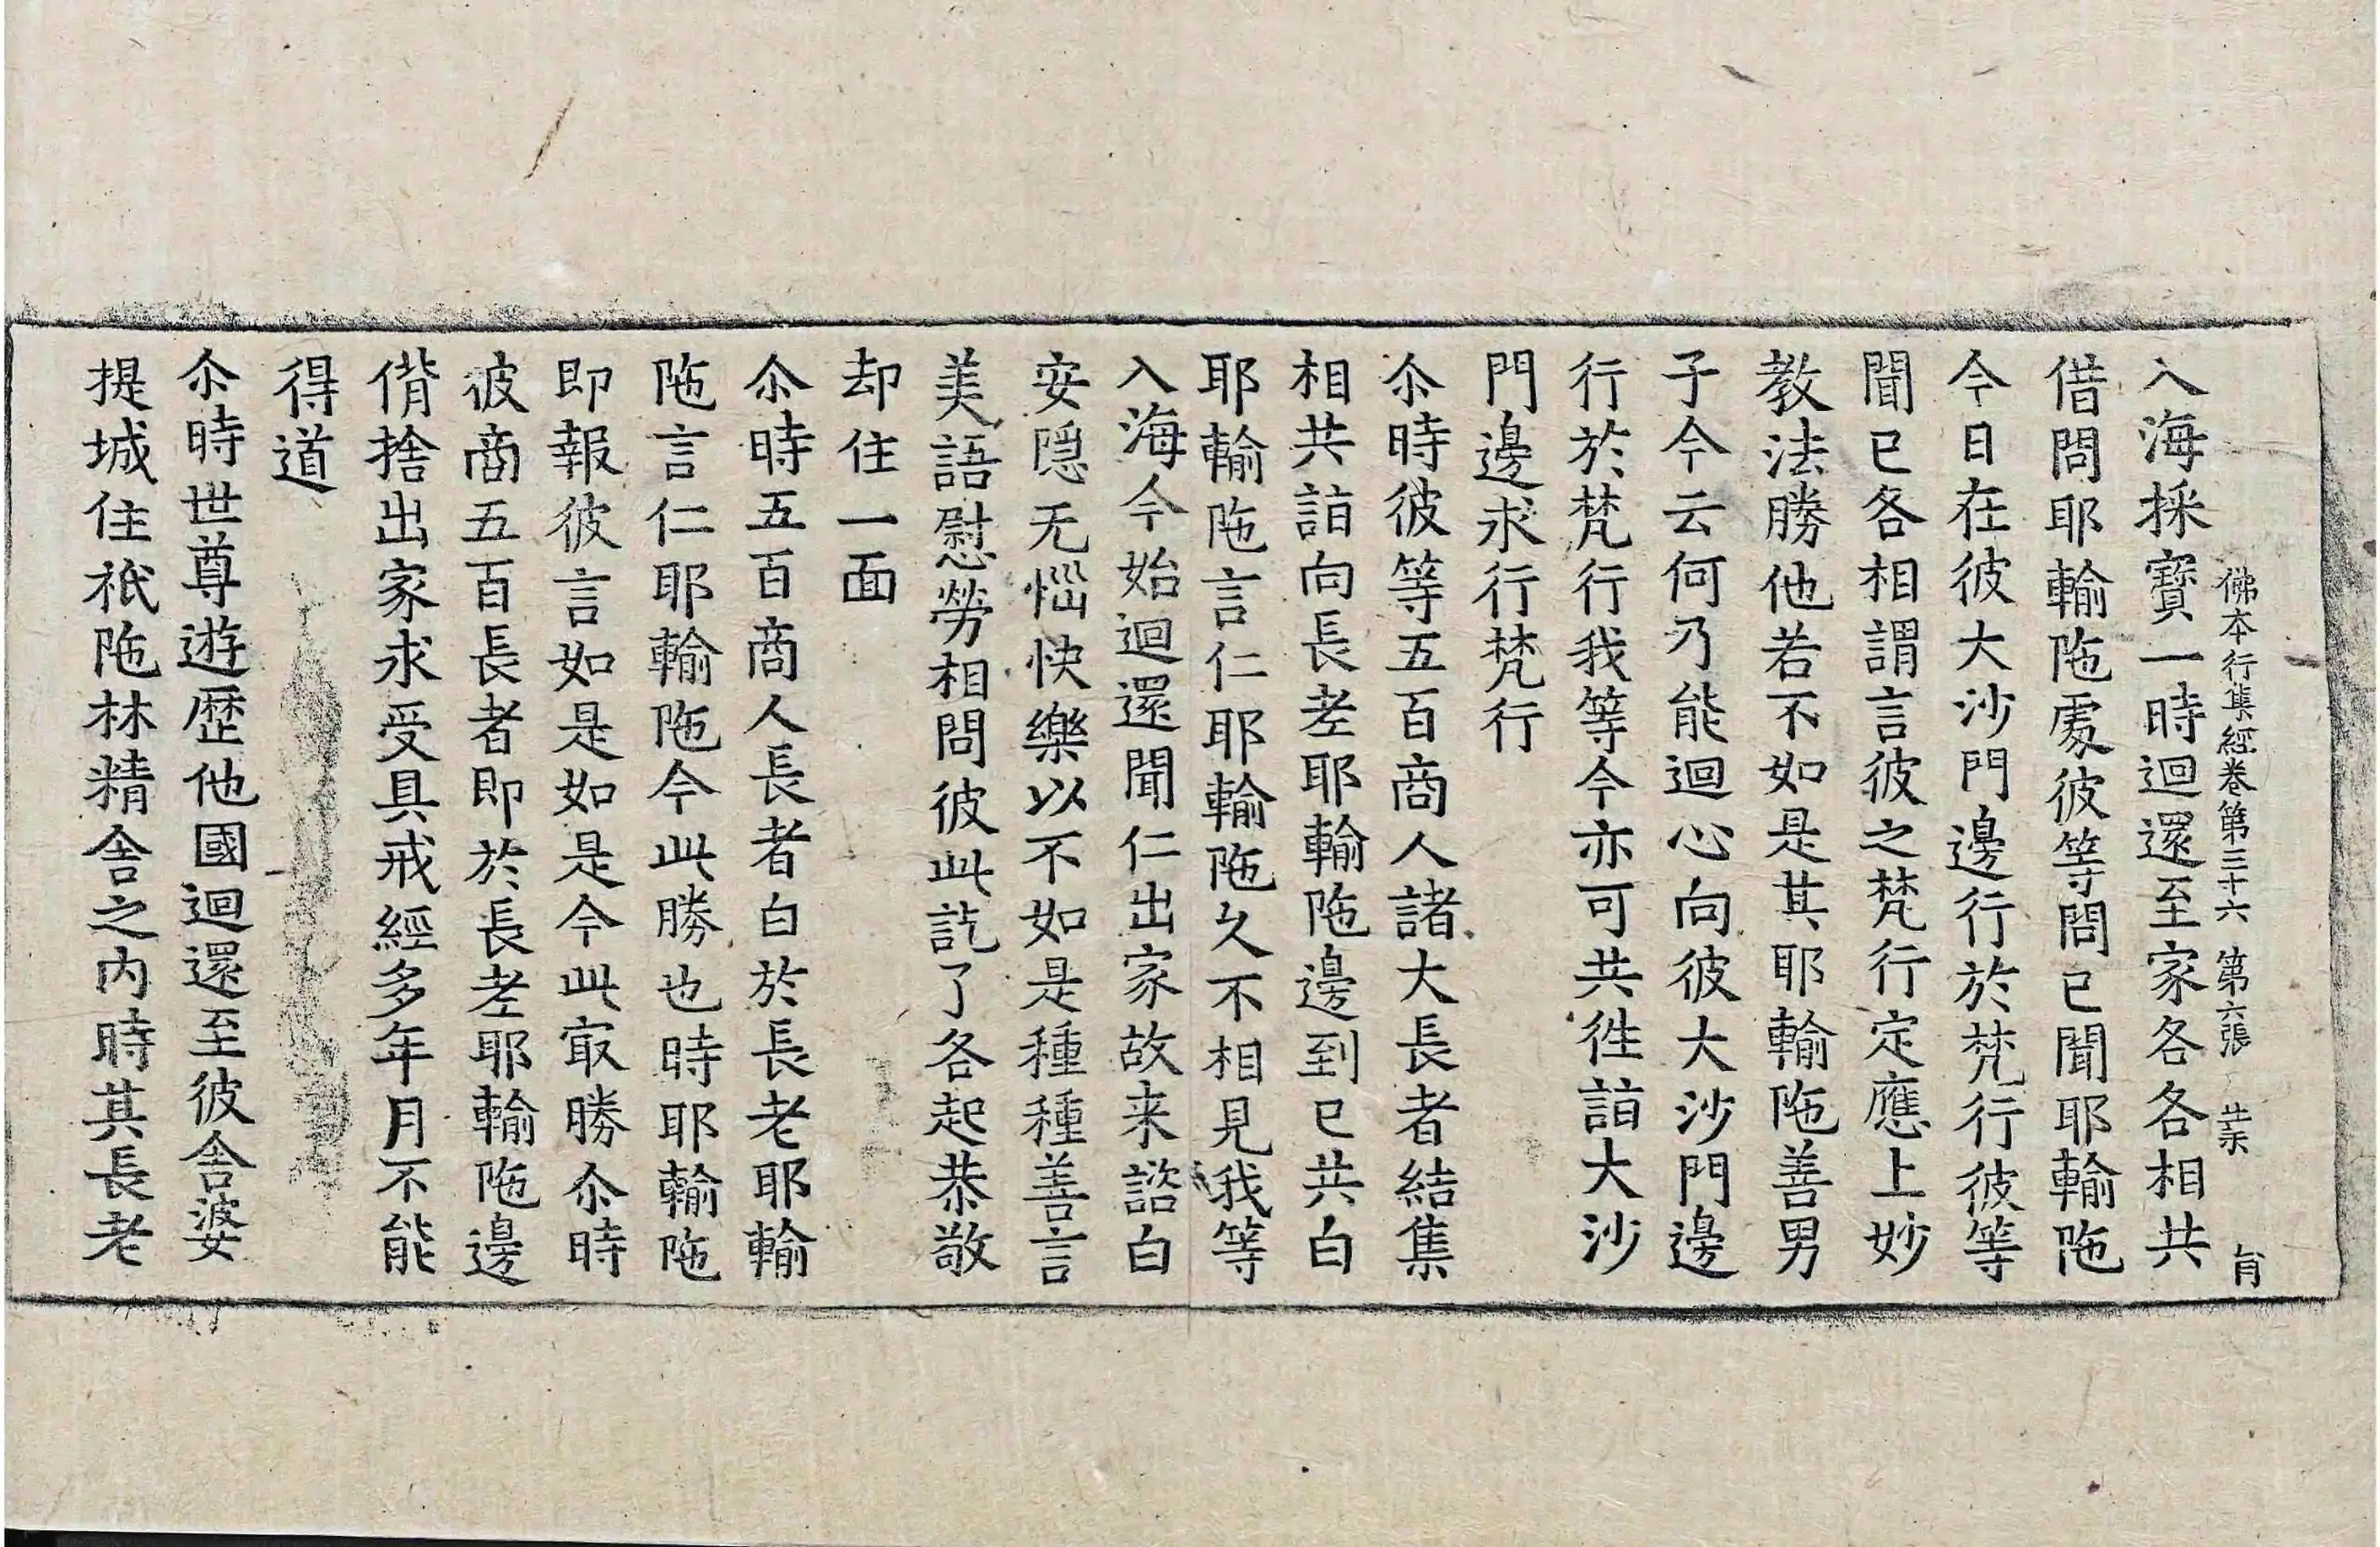 佛本行集經卷第三十六 第六張 育
入海採寶一時迴還至家各各相共
借問耶輸陁處彼等問已聞耶輸陁
今日在彼大沙門邊行於梵行彼等
聞已各相謂言彼之梵行定應上妙
教法勝他若不如是其耶輸陁善男
子今云何乃能迴心向彼大沙門邊
行於梵行我等今亦可共徃詣大沙
門邊求行梵行
尒時彼等五百商人諸大長者結集
相共詣向長老耶輸陁邊到已共白
耶輸陁言仁耶輸陁久不相見我等
入海今始迴還聞仁出家故来諮白
安隱无惱快樂以不如是種種善言
美語慰勞相問彼此訖了各起恭敬
却住一面
尒時五百商人長者白於長老耶輸
陁言仁耶輸陁今此勝也時耶輸陁
即報彼言如是如是今此㝡勝尒時
彼商五百長者即於長老耶輸陁邊
偝捨出家求受具戒經多年月不能
得道
尒時世尊遊歷他國迴還至彼舍婆
提城住祇陁林精舍之内時其長老